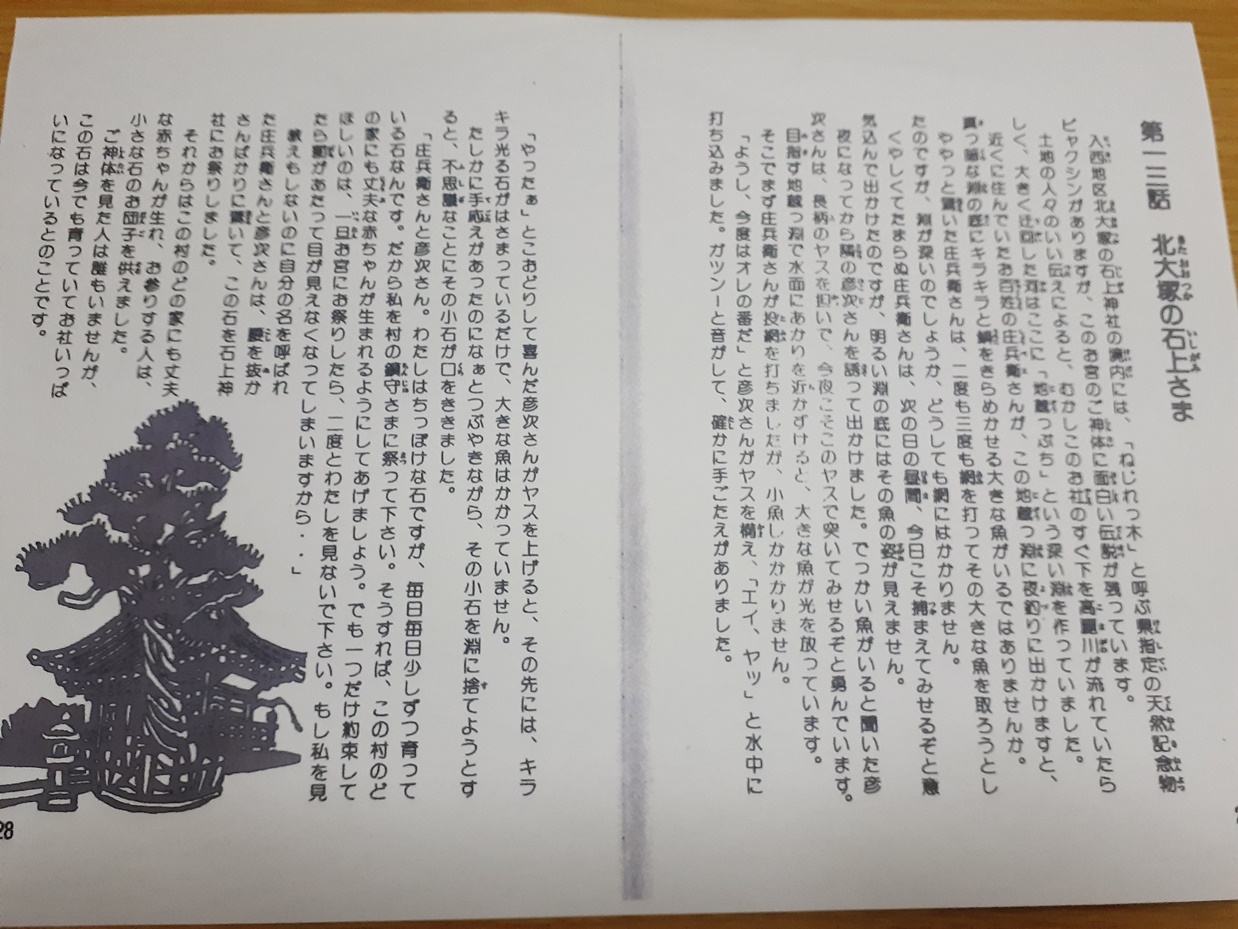 第一三話　北大塚の石上さま
入西地区北大塚の石上神社の境内には、「ねじれっ木」と呼ぶ県指定の天然記念物
ビャクシンがありますが、このお宮のご神体に面白い伝説が残っています。
土地の人々のいい伝えによると、むかしこのお社のすぐ下を高麗川が流れていたら
しく、大きく迂回した河はここに「地蔵っぷち」という深い淵を作っていました。
近くに住んでいたお百姓の庄兵衛さんが、この地蔵っ淵に夜釣りに出かけますと、
真っ暗な淵の底にキラキラと鱗をきらめかせる大きな魚がいるではありませんか。
ややっと驚いた庄兵衛さんは、二度も三度も網を打ってその大きな魚を取ろうとし
たのですが、淵が深いのでしょうか、どうしても網にはかかりません。
くやしくてたまらぬ庄兵衛さんは、次の日の昼間、今日こそ捕まえてみせるぞと意
気込んで出かけたのですが、明るい淵の底にはその魚の姿が見えません。
夜になってから隣の彦次さんを誘って出かけました。でっかい魚がいると聞いた彦
次さんは、長柄のヤスを担いで、今夜こそこのヤスで突いてみせるぞと勇んでいます。
目指す地蔵っ淵で水面にあかりを近かずけると、大きな魚が光を放っています。
そこでまず庄兵衛さんが投網を打ちましたが、小魚しかかかりません。
「ようし、今度はオレの番だ」と彦次さんがヤスを構え、「エイ、ヤッ」と水中に
打ち込みました。ガツンーと音がして、確かに手ごたえがありました。
「やったぁ」とこおどりして喜んだ彦次さんがヤスを上げると、その先には、キラ
キラ光る石がはさまっているだけで、大きな魚はかかっていません。
たしかに手応えがあったのになぁとつぶやきながら、その小石を淵に捨てようとす
ると、不思議なことにその小石が口をききました。
「庄兵衛さんと彦次さん。わたしはちっぽけな石ですが、毎日毎日少しずつ育って
いる石なんです。だから私を村の鎮守さまに祭って下さい。そうすれば、この村のど
の家にも丈夫な赤ちゃんが生まれるようにしてあげましょう。でも一つだけ約束して
ほしいのは、一旦お宮にお祭りしたら、二度とわたしを見ないで下さい。もし私を見
たら罰があたって目が見えなくなってしまいますから・・」
教えもしないのに自分の名を呼ばれ
た庄兵衛さんと彦次さんは、腰を抜か
さんばかりに驚いて、この石を石上神
社にお祭りしました。
それからはこの村のどの家にも丈夫
な赤ちゃんが生れ、お参りする人は、
小さな石のお団子を供えました。
ご神体を見た人は誰もいませんが、
この石は今でも育っていてお社いっぱ
いになっているとのことです。
28